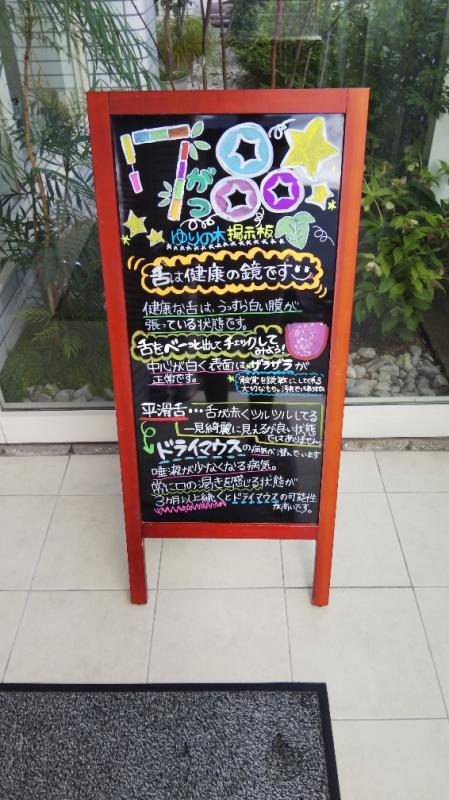 7がつ
ゆりの木 掲示板
舌は健康の鏡です
健康な舌は、うっすら白い膜が
張っている状態です。
舌をべーっと出してチェックして
みよう!
中心が白く表面はザラザラが
正常です。
触覚を鋭敏にしてくれる
大切なもの。汚れではありません
平滑舌…舌が赤くツルツルしてる
一見綺麗に見えるが良い状態
ではありません。
ドライマウスの病気が潜んでいます
唾液が少なくなる病気。
常に口の渇きを感じる状態が
3ヵ月以上続くとドライマウスの可能性
が高いです。